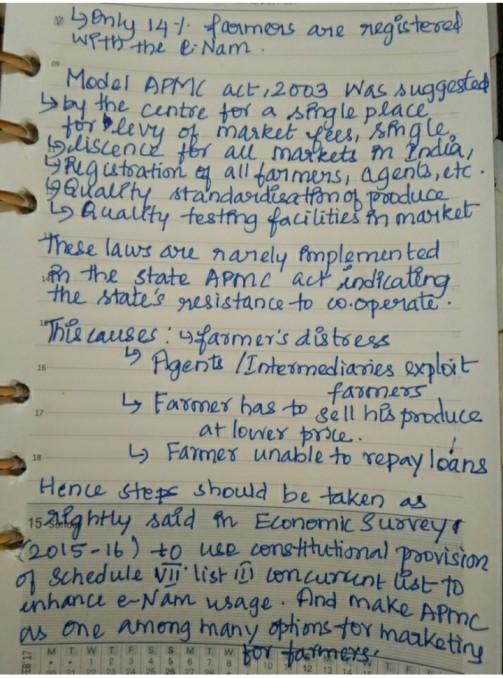 ↳ Only 14% farmers are registered
with the e-Nam.
Model APMC act, 2003 was suggested
↳ by the centre for a single place
for levy of market fees, single
↳ liscence for all markets in India,
↳ Registration of all farmers, agents, etc.
↳ Quality standardisation of produce
↳ Quality testing facilities in market
These laws are rarely implemented
in the state APMC act indicating
the state's resistance to co-operate.
This causes: ↳ farmer's distress
↳ Agents / Intermediaries exploit
16
farmers
↳ Farmer has to sell his produce
17
at lower price.
18
↳ Farmer unable to repay loans
Hence steps should be taken as
15
rightly said in Economic Survey
(2015-16) to use constitutional provision
of Schedule VII list III concurrent list to
enhance e-Nam usage. And make APMC
as one among many options for marketing
for farmers.
FEB'17
M T W T F S S M T W
1 2 3 4 5 6 7 8